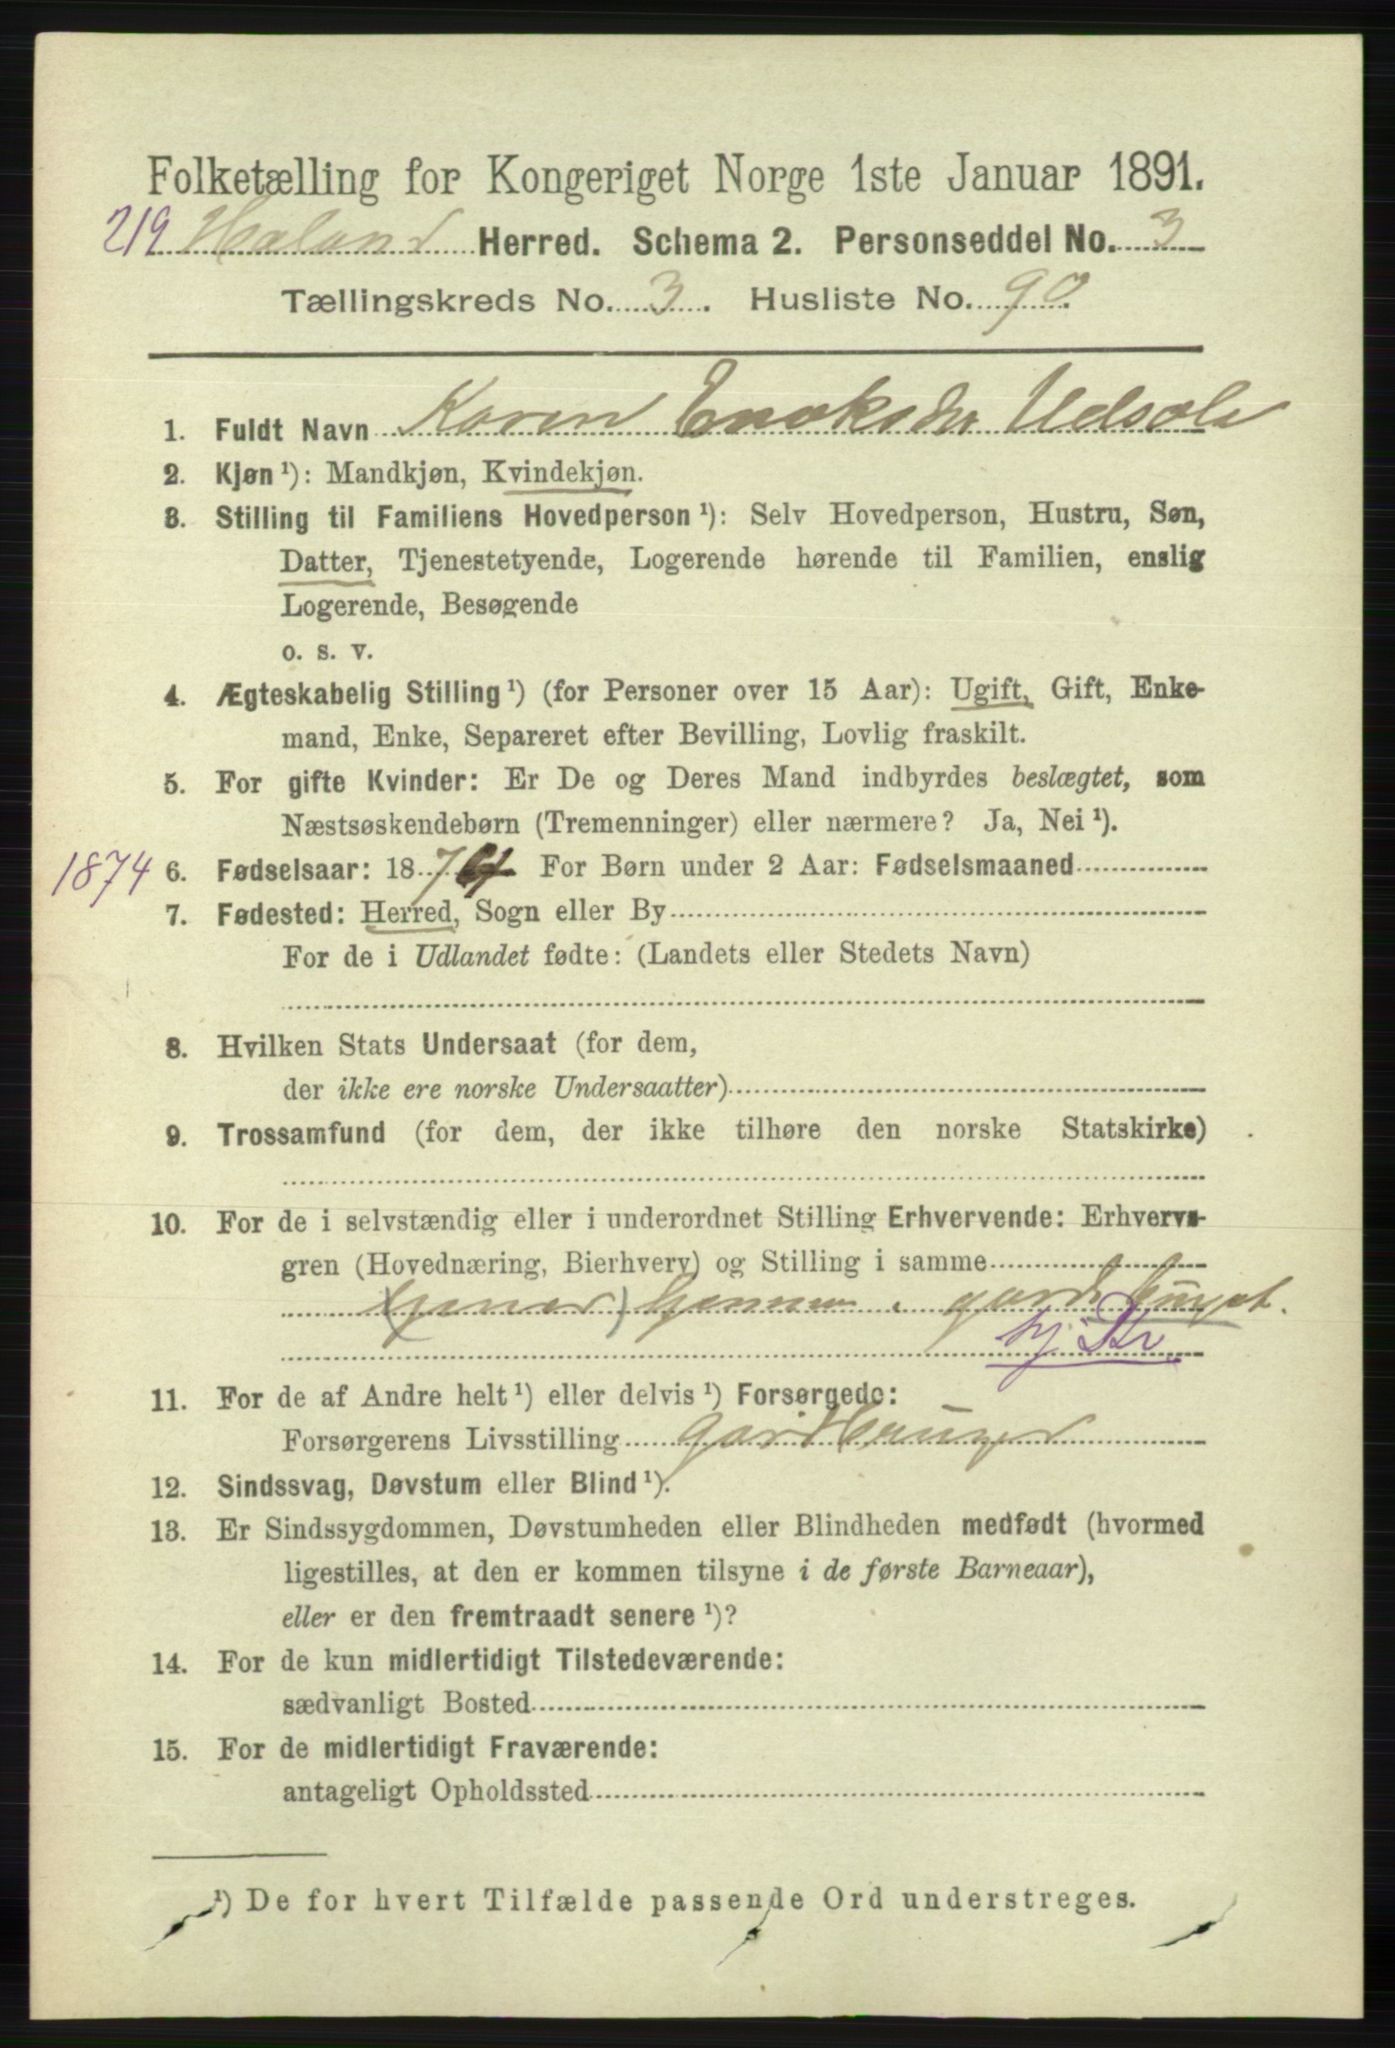 Folketælling for Kongeriget Norge 1ste Januar 1891.
219 Haland Herred. Schema 2. Personseddel No. 3
Tællingskreds No. 3. Husliste No. 90.
1. Fuldt Navn Karen Enoksdr Udsola
2. Kjøn ¹): Mandkjøn, Kvindekjøn.
3. Stilling til Familiens Hovedperson ¹): Selv Hovedperson, Hustru, Søn,
Datter, Tjenestetyende, Logerende hørende til Familien, enslig
Logerende, Besøgende
o. s. v.
4. Ægteskabelig Stilling ¹) (for Personer over 15 Aar): Ugift, Gift, Enke-
mand, Enke, Separeret efter Bevilling, Lovlig fraskilt.
5. For gifte Kvinder: Er De og Deres Mand indbyrdes beslægtet, som
Næstsøskendebørn (Tremenninger) eller nærmere? Ja, Nei ¹).
1874 6. Fødselsaar: 1874 For Børn under 2 Aar: Fødselsmaaned
7. Fødested: Herred, Sogn eller By
For de i Udlandet fødte: (Landets eller Stedets Navn)
8. Hvilken Stats Undersaat (for dem,
der ikke ere norske Undersaatter)
9. Trossamfund (for dem, der ikke tilhøre den norske Statskirke)
10. For de i selvstændig eller i underordnet Stilling Erhvervende: Erhvervs-
gren (Hovednæring, Bierhverv) og Stilling i samme
gards
tj.
11. For de af Andre helt ¹) eller delvis ¹) Forsørgede:
Forsørgerens Livsstilling
12. Sindssvag, Døvstum eller Blind ¹).
13. Er Sindssygdommen, Døvstumheden eller Blindheden medfødt (hvormed
ligestilles, at den er kommen tilsyne i de første Barneaar),
eller er den fremtraadt senere ¹)?
14. For de kun midlertidigt Tilstedeværende:
sædvanligt Bosted
15. For de midlertidigt Fraværende:
antageligt Opholdssted
¹) De for hvert Tilfælde passende Ord understreges.